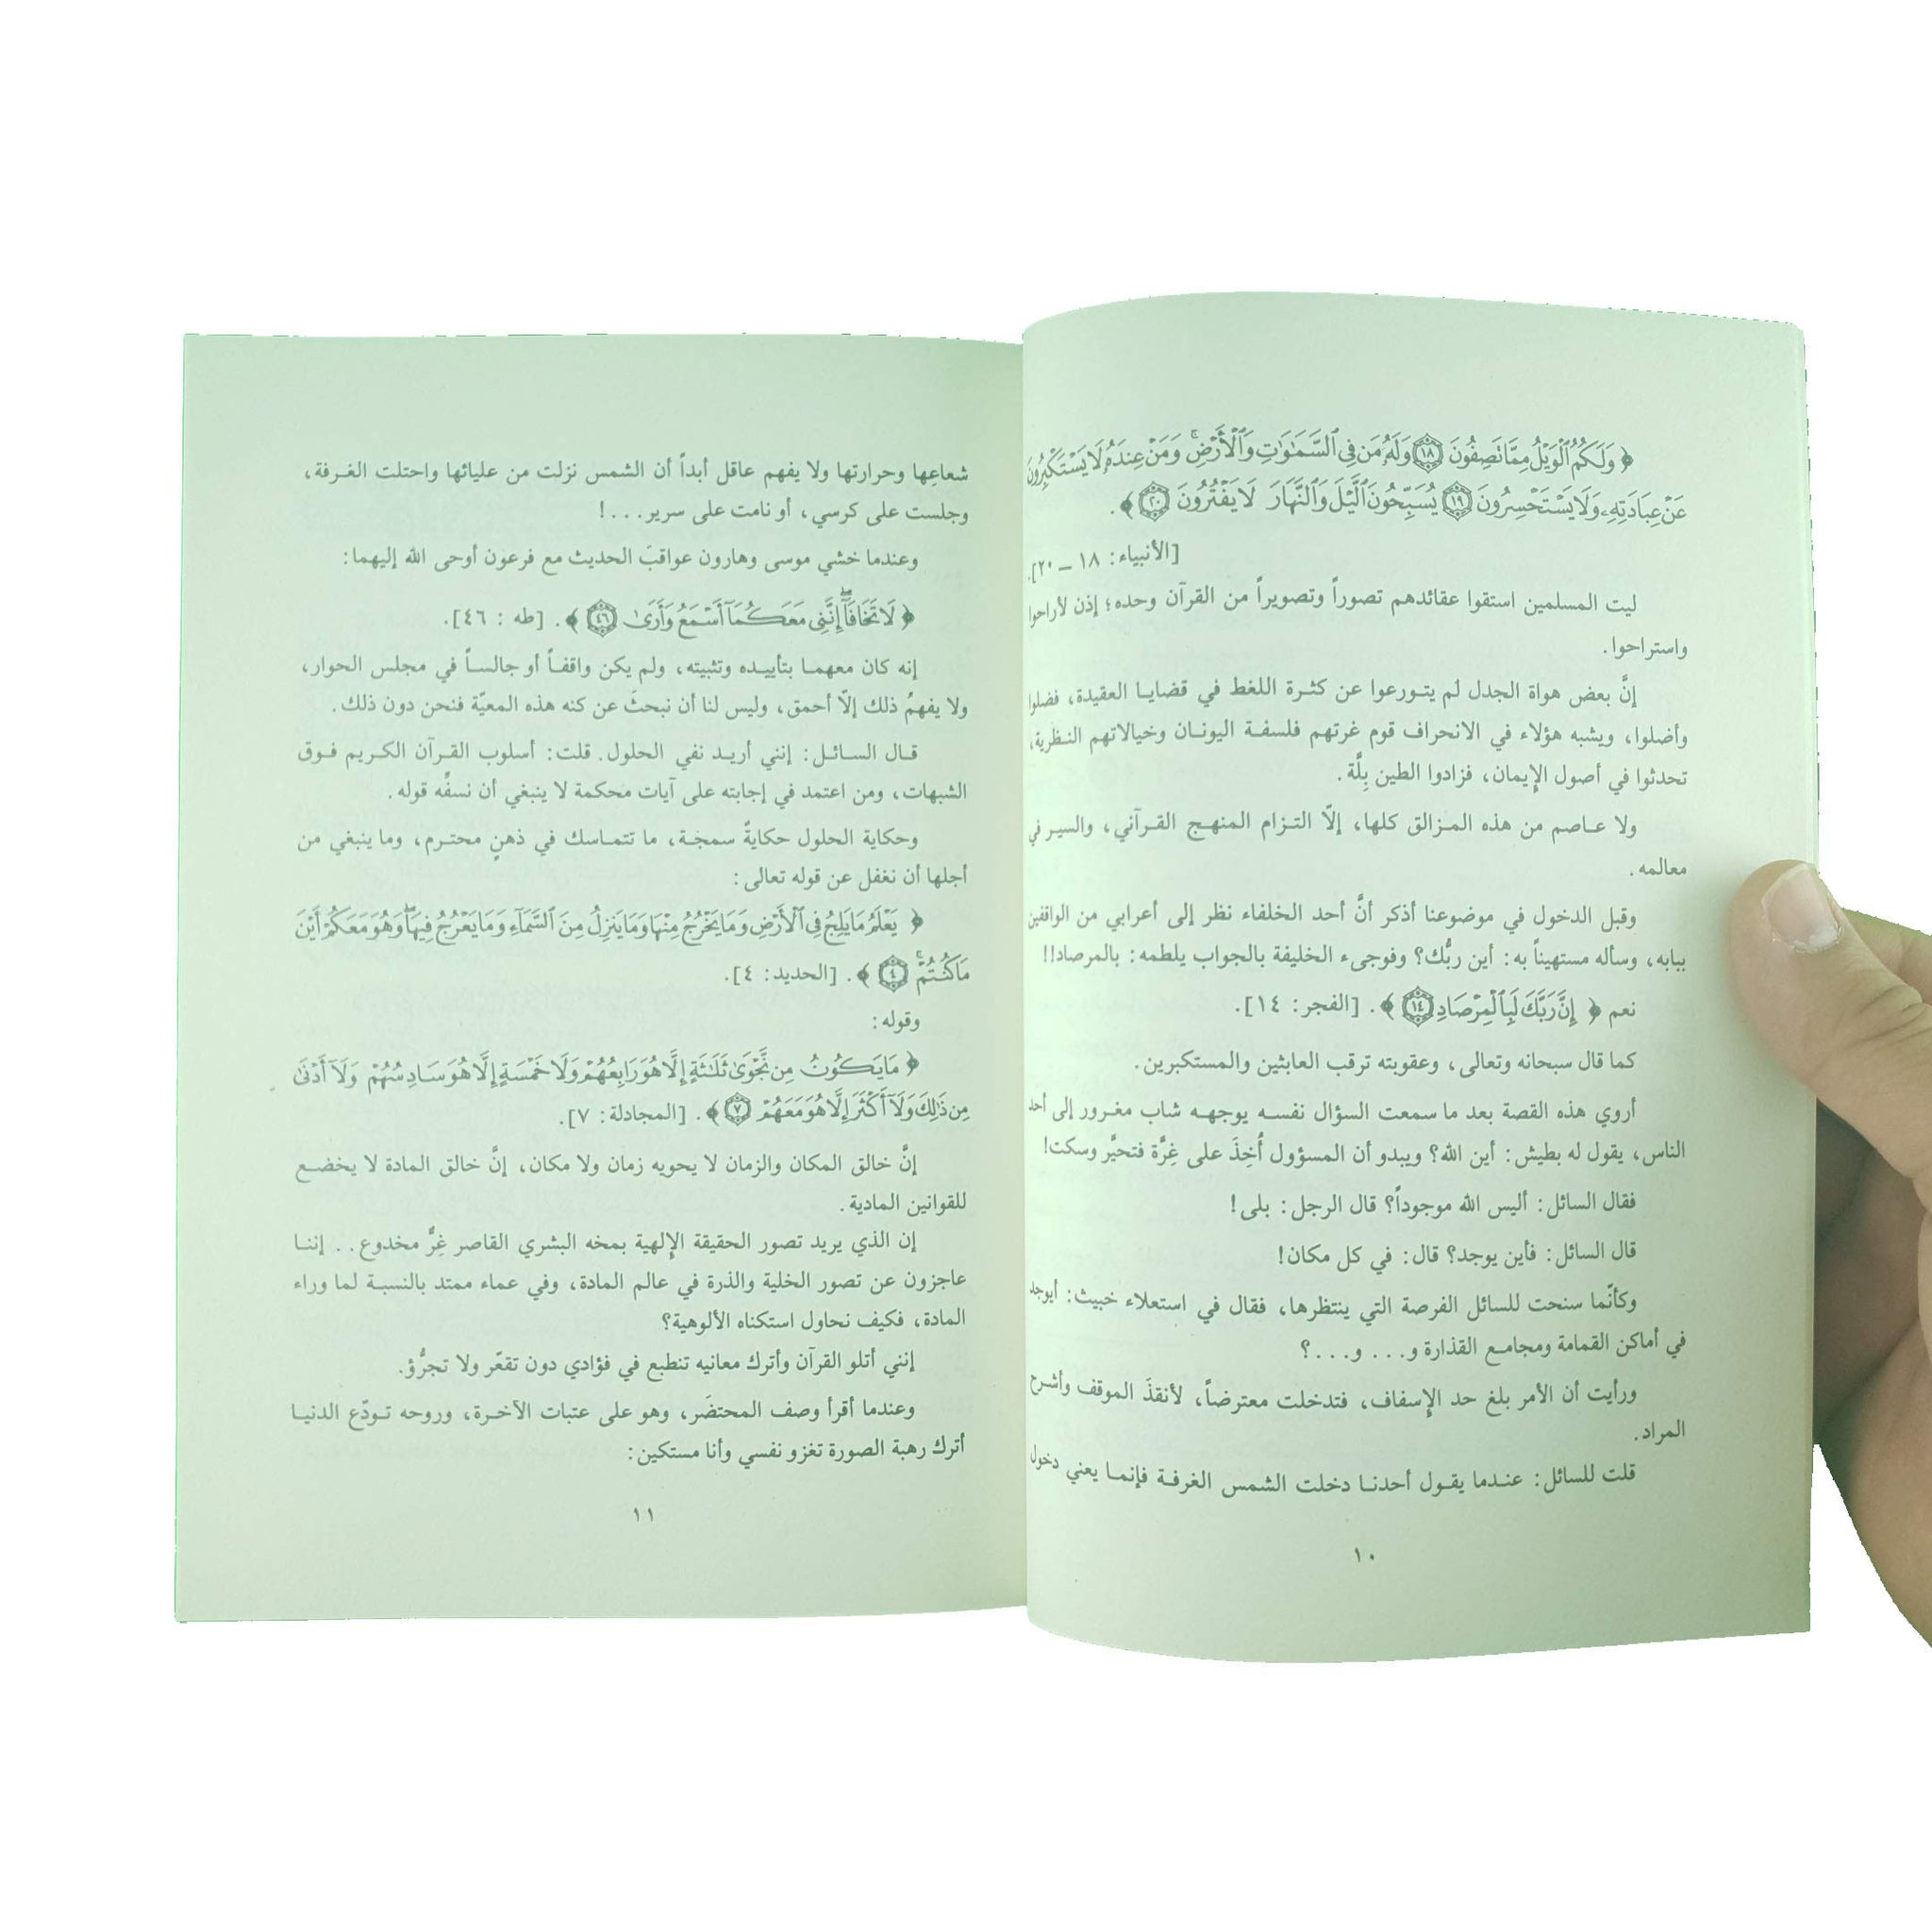 ﴿ وَلَكُمُ ٱلْوَيْلُ مِمَّا تَصِفُونَ ۝١٨ وَلَهُۥ مَن فِى ٱلسَّمَٰوَٰتِ وَٱلْأَرْضِ ۚ وَمَنْ عِندَهُۥ لَا يَسْتَكْبِرُونَ
عَنْ عِبَادَتِهِۦ وَلَا يَسْتَحْسِرُونَ ۝١٩ يُسَبِّحُونَ ٱلَّيْلَ وَٱلنَّهَارَ لَا يَفْتُرُونَ ۝٢٠ ﴾.
[الأنبياء: ١٨ – ٢٠].
ليت المسلمين استقوا عقائدهم تصوراً وتصويراً من القرآن وحده؛ إذن لأراحوا
واستراحوا.
إنَّ بعض هواة الجدل لم يتورعوا عن كثرة اللغط في قضايا العقيدة، فضلوا
وأضلوا، ويشبه هؤلاء في الانحراف قوم غرتهم فلسفة اليونان وخيالاتهم النظرية،
تحدثوا في أصول الإيمان، فزادوا الطين بِلَّة.
ولا عاصم من هذه المزالق كلها، إلّا التزام المنهج القرآني، والسير في
معالمه.
وقبل الدخول في موضوعنا أذكر أنَّ أحد الخلفاء نظر إلى أعرابي من الواقفين
ببابه، وسأله مستهيناً به: أين ربُّك؟ وفوجىء الخليفة بالجواب يلطمه: بالمرصاد!!
نعم ﴿ إِنَّ رَبَّكَ لَبِٱلْمِرْصَادِ ۝١٤ ﴾. [الفجر: ١٤].
كما قال سبحانه وتعالى، وعقوبته ترقب العابثين والمستكبرين.
أروي هذه القصة بعد ما سمعت السؤال نفسه يوجهه شاب مغرور إلى أحد
الناس، يقول له بطيش: أين الله؟ ويبدو أن المسؤول أُخِذَ على غِرَّة فتحيَّر وسكت!
فقال السائل: أليس الله موجوداً؟ قال الرجل: بلى!
قال السائل: فأين يوجد؟ قال: في كل مكان!
وكأنّما سنحت للسائل الفرصة التي ينتظرها، فقال في استعلاء خبيث: أيوجد
في أماكن القمامة ومجامع القذارة و... و...؟
ورأيت أن الأمر بلغ حد الإسفاف، فتدخلت معترضاً، لأنقذَ الموقف وأشرح
المراد.
قلت للسائل: عندما يقول أحدنا دخلت الشمس الغرفة فإنما يعني دخول
١٠
شعاعِها وحرارتها ولا يفهم عاقل أبداً أن الشمس نزلت من عليائها واحتلت الغرفة،
وجلست على كرسي، أو نامت على سرير...!
وعندما خشي موسى وهارون عواقبَ الحديث مع فرعون أوحى الله إليهما:
﴿ لَا تَخَافَآ ۖ إِنَّنِى مَعَكُمَآ أَسْمَعُ وَأَرَىٰ ۝٤٦ ﴾. [طه : ٤٦].
إنه كان معهما بتأييده وتثبيته، ولم يكن واقفاً أو جالساً في مجلس الحوار،
ولا يفهمُ ذلك إلّا أحمق، وليس لنا أن نبحثَ عن كنه هذه المعيّة فنحن دون ذلك.
قال السائل: إنني أريد نفي الحلول. قلت: أسلوب القرآن الكريم فوق
الشبهات، ومن اعتمد في إجابته على آيات محكمة لا ينبغي أن نسفِّه قوله.
وحكاية الحلول حكايةٌ سمجة، ما تتماسك في ذهنٍ محترم، وما ينبغي من
أجلها أن نغفل عن قوله تعالى:
﴿ يَعْلَمُ مَا يَلِجُ فِى ٱلْأَرْضِ وَمَا يَخْرُجُ مِنْهَا وَمَا يَنزِلُ مِنَ ٱلسَّمَآءِ وَمَا يَعْرُجُ فِيهَا ۖ وَهُوَ مَعَكُمْ أَيْنَ
مَا كُنتُمْ ۚ ۝٤ ﴾. [الحديد: ٤].
وقوله:
﴿ مَا يَكُونُ مِن نَّجْوَىٰ ثَلَٰثَةٍ إِلَّا هُوَ رَابِعُهُمْ وَلَا خَمْسَةٍ إِلَّا هُوَ سَادِسُهُمْ وَلَآ أَدْنَىٰ
مِن ذَٰلِكَ وَلَآ أَكْثَرَ إِلَّا هُوَ مَعَهُمْ ۝٧ ﴾. [المجادلة: ٧].
إنَّ خالق المكان والزمان لا يحويه زمان ولا مكان، إنَّ خالق المادة لا يخضع
للقوانين المادية.
إن الذي يريد تصور الحقيقة الإلهية بمخه البشري القاصر غِرٌّ مخدوع.. إننا
عاجزون عن تصور الخلية والذرة في عالم المادة، وفي عماء ممتد بالنسبة لما وراء
المادة، فكيف نحاول استكناه الألوهية؟
إنني أتلو القرآن وأترك معانيه تنطبع في فؤادي دون تقعّر ولا تجرُّؤ.
وعندما أقرأ وصف المحتضَر، وهو على عتبات الآخرة، وروحه تودّع الدنيا
أترك رهبة الصورة تغزو نفسي وأنا مستكين:
١١